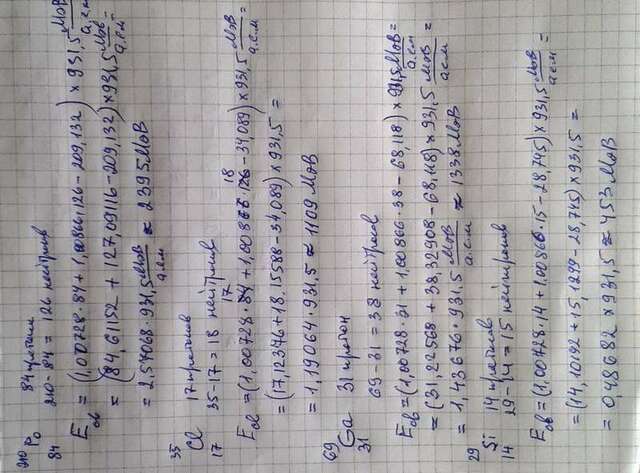 210 Po 84 протона
84 210-84 = 126 нейтрона
Eсв = (1,00728·84 + 1,00866·126 - 209,132) × 931,5 МэВ/а.е.м =
= (84,61152 + 127,09116 - 209,132) × 931,5 МэВ/а.е.м =
= 2,57068·931,5 МэВ/а.е.м ≈ 2395 МэВ
35 Cl 17 протонів
17 35-17 = 18 нейтронів
Eсв = (1,00728·17 + 1,00866·18 - 34,089) × 931,5 МэВ/а.е.м =
= (17,12376 + 18.15588 - 34,089) × 931,5 =
= 1,19064·931,5 ≈ 1109 МэВ
69 Ga 31 протон
31 69-31 = 38 нейтронов
Eсв = (1,00728·31 + 1,00866·38 - 68,118) × 931,5 МэВ/а.е.м =
= (31,22568 + 38,32908 - 68,118) × 931,5 МэВ/а.е.м =
= 1,43676·931,5 МэВ/а.е.м ≈ 1338 МэВ
29 Si 14 протонів
14 29-14 = 15 нейтронів
Eсв = (1,00728·14 + 1,00866·15 - 28,745) × 931,5 МэВ/а.е.м =
= (14,10192 + 15,1299 - 28,745) × 931,5 =
= 0,48682 × 931,5 ≈ 453 МэВ